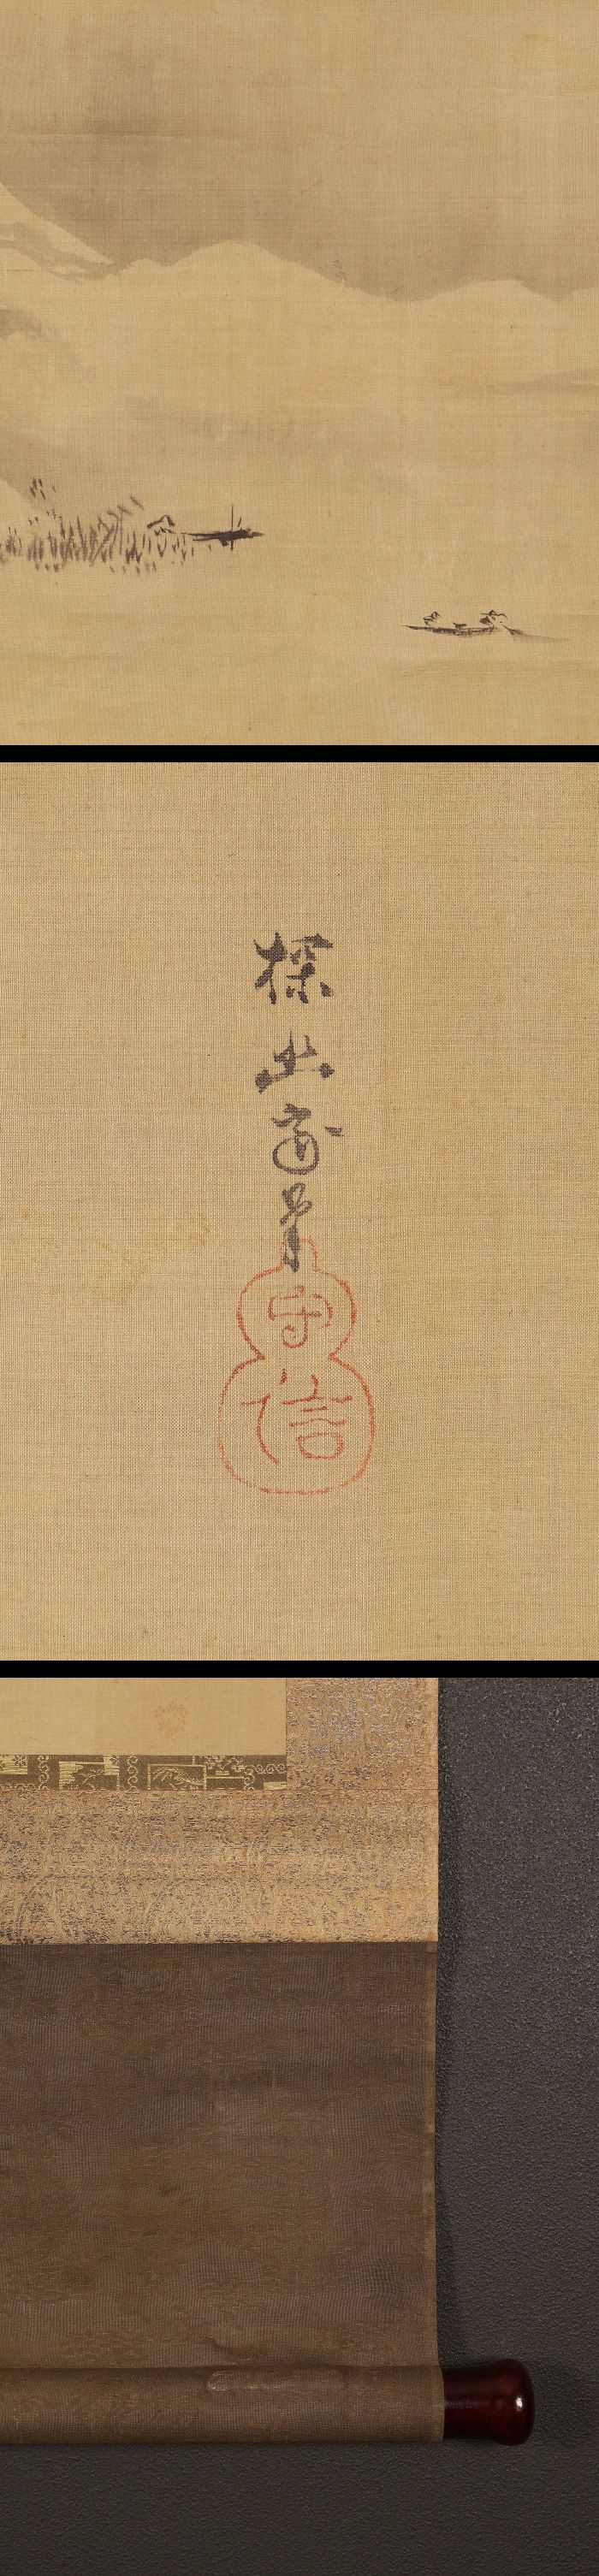 探幽斎筆
守信